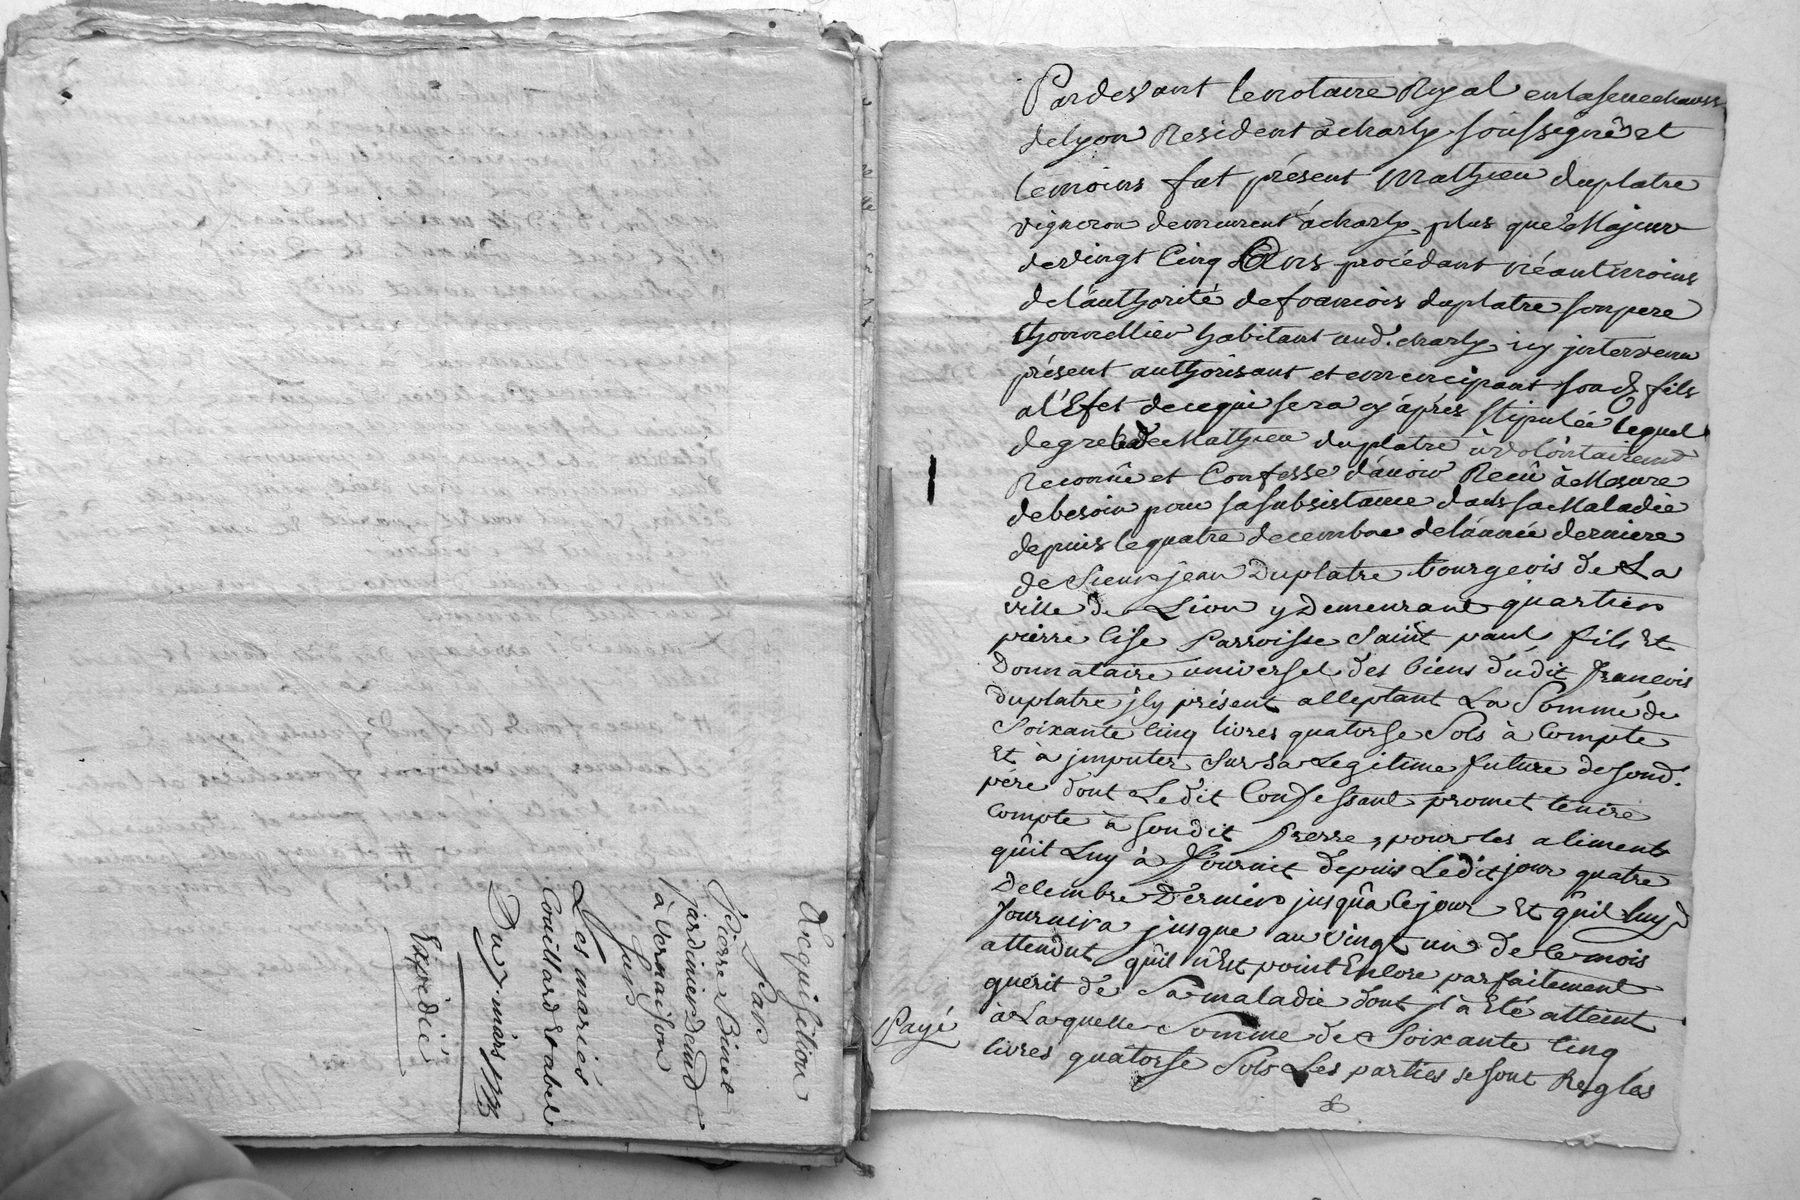 Acquisition
Par
Pierre Binet
jardinier demt
à Vernaison
Sur
Les mariés
Couillard et abel
Du 7 mars
Expédié
Pardevant le notaire Royal en la senechaussé
de lyon Resident à charly soussigné et
temoins fut présent Mathieu duplatre
vigneron demeurent à charly plus que Majeur
de vingt Cinq Ans procédant néantmoins
de l'authorité de francois duplatre son pere
thonnellier habitant aud. charly icy intervenu
présent authorisant et emencipant son d. fils
a l'Efet de ce qui sera cy áprés stipulée lequel
de gre led. Mathieu duplatre à volontairemt
Reconnû et Confesse d'avoir Recû à Mesure
de besoin pour sa subsistance dans sa Maladie
depuis le quatre decembre de l'année derniere
de Sieur jean Duplatre bourgeois de La
ville de Lion y Demeurant quartier
pierre Cise Parroisse Saint paul, fils Et
Donnataire universel des biens dudit francois
duplatre jcy présent acceptant La Somme de
Soixante Cinq livres quatorse Sols à Compte
Et à jmputer Sur sa Legitime future de sond.
père dont Ledit Confessant promet tenire
Compte à son dit frerre, pour les aliments
quit Luy à fournit depuis Ledit jour quatre
Decembre Dernier jusquâ Ce jour Et quil luy
fournira jusque au vingt un de Ce mois
attendut quil n'Est point Encore parfaitement
guérit de Sa maladie dont jl à Eté atteint
à Laquelle Somme de Soixante Cinq
livres quatorse Sols Les parties se sont Reglés
Payé